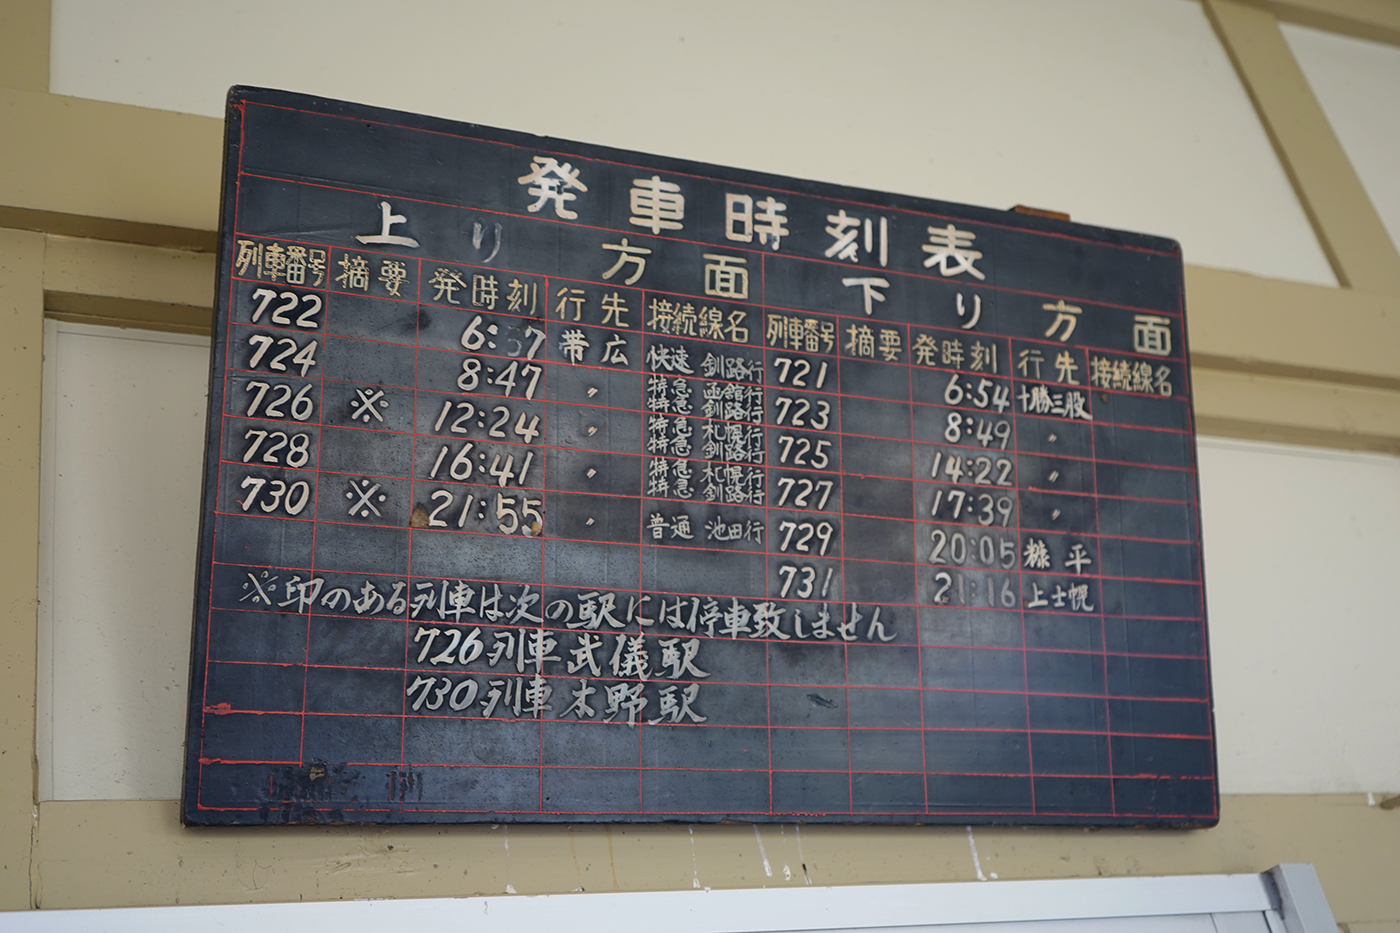 発車時刻表
上り方面 下り方面
列車番号 摘要 発時刻 行先 接続線名 列車番号 摘要 発時刻 行先 接続線名
722 6: 7 帯広 快速 釧路行 721 6:54 十勝三股
724 8:47 〃 特急 函館行 特急 釧路行 723 8:49 〃
726 ※ 12:24 〃 特急 札幌行 特急 釧路行 725 14:22 〃
728 16:41 〃 特急 札幌行 特急 釧路行 727 17:39 〃
730 ※ 21:55 〃 普通 池田行 729 20:05 糠平
731 21:16 上士幌
※印のある列車は次の駅には停車致しません
726列車 武儀駅
730列車 木野駅